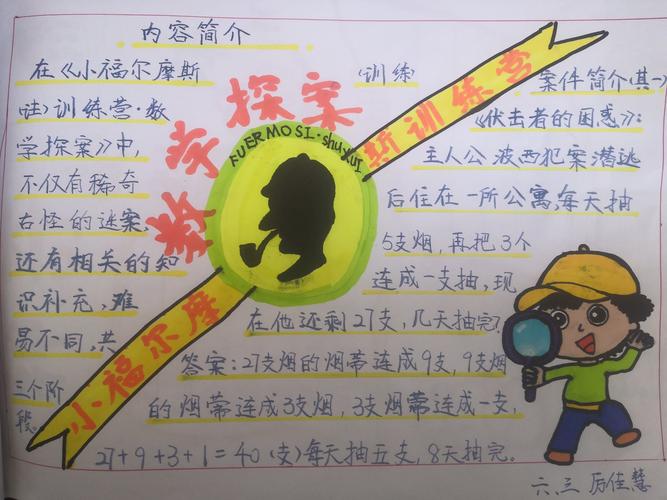 内容简介
在《小福尔摩斯
(训练)
哇)训练营·数
学探案》中,
不仅有稀奇
古怪的谜案,
还有相关的知
识补充,难
易不同,共
三个阶
段。
数学探案
FUERMOSI·shuxue
小福尔摩
斯训练营
案件简介(其一)
《伏击者的困惑》:
主人公波西犯案潜逃
后住在一所公寓,每天抽
5支烟,再把3个
连成一支抽,现
在他还剩27支,几天抽完?
答案:27支烟的烟蒂连成9支,9支烟
的烟蒂连成3支烟,3支烟蒂连成一支,
27+9+3+1=40(支)每天抽五支,8天抽完。
六.三 厉佳慧